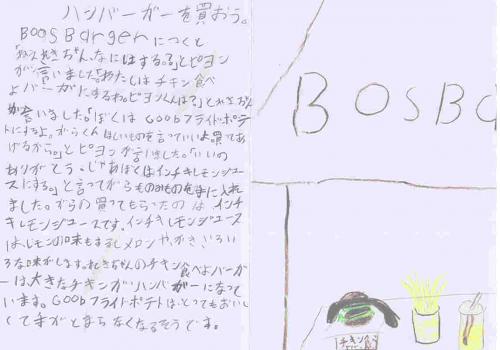 ハンバーガーを買おう。
BOOSBargerにつくと
「ねえれきちゃん、なにはする？」とピヨン
が言いました。「わたしはチキン食べ
よバーガーにするわ。ピヨンくんは？」とれきちゃん
が言いました。「ぼくはGOobフライドポテ
トにするよ。がらくんほしいものを言っていいよ。買ってあ
げるから。」とピヨンが言いました。「いいの
ありがとう。じゃあぼくはインチキレモンジュー
スにする。」と言ってがらものみものを手に入れ
ました。がらの買ってもらったのはインチ
キレモンジュースです。インチキレモンジュース
は、レモンの味もするしメロンや、かきいろい
ろな味がします。れきちゃんのチキン食べよバーガ
ーは、大きなチキンがハンバーガーになって
います。GOobフライドポテトは、とってもおいし
くて手がとまらなくなるそうです。
BOSBa
チキン食べ